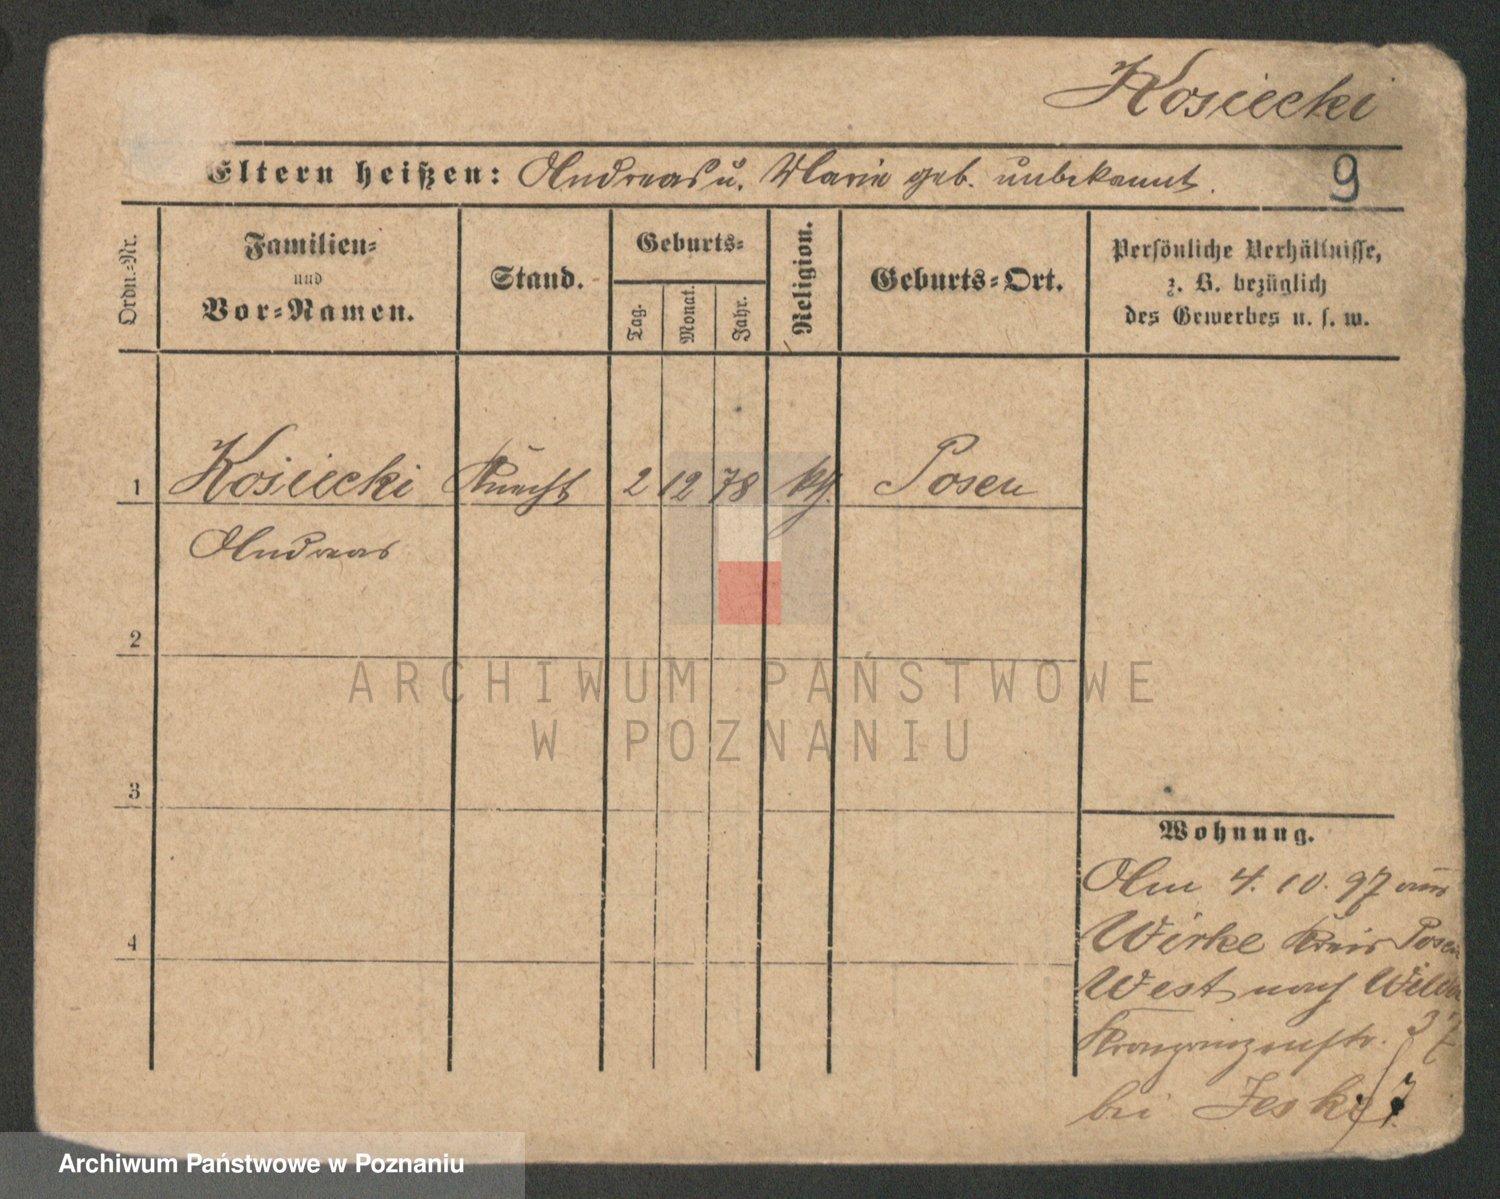 Kosiecki
Eltern heißen: Andreas u. Marie geb. unbekannt.
9
Ordn.-Nr.
Familien-
und
Vor-Namen.
Stand.
Geburts-
Tag.
Monat.
Jahr.
Religion.
Geburts-Ort.
Persönliche Verhältnisse,
z. B. bezüglich
des Gewerbes u. s. w.
1 Kosiecki Knecht 2 12 78 kth. Posen
Andreas
2
3
4
Wohnung.
Am 4. 10. 97 aus
Wirke Kreis Posen
West nach Wilda
Kronprinzenstr. 37
bei Jeske
ARCHIWUM PAŃSTWOWE
W POZNANIU
Archiwum Państwowe w Poznaniu